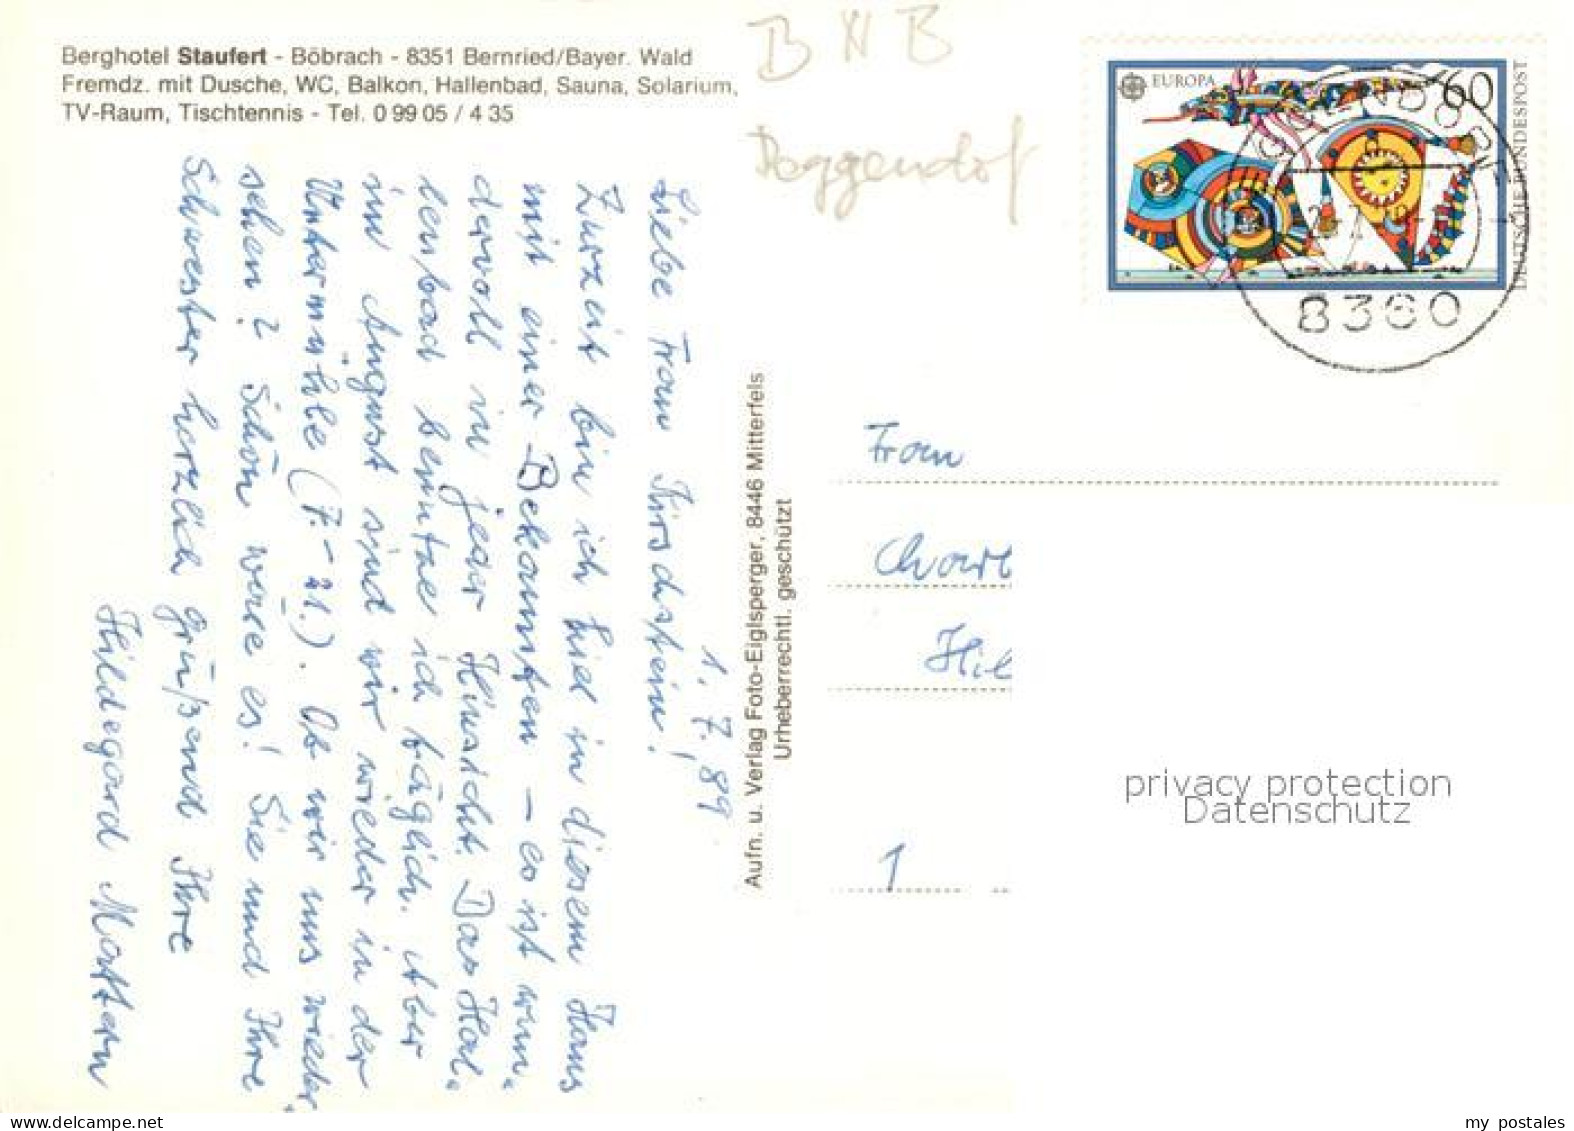 Berghotel Staufert - Böbrach - 8351 Bernried/Bayer. Wald
Fremdz. mit Dusche, WC, Balkon, Hallenbad, Sauna, Solarium,
TV-Raum, Tischtennis - Tel. 0 99 05 / 4 35
B H B
Deggendof
EUROPA
60
DEUTSCHE BUNDESPOST
8360
1. 7. 89
Liebe Frau Kirschstein!
Zurzeit bin ich hier in diesem Haus
mit einer Bekannten – es ist wun-
dervoll in jeder Hinsicht. Das Hal-
lenbad benutze ich täglich. Aber
im August sind wir wieder in der
Untermühle (7. – 21.). Ob wir uns wieder
sehen? Schön wäre es! Sie und Ihre
Schwester herzlich grüßend Ihre
Hildegard Mattern
Aufn. u. Verlag Foto-Eiglsperger, 8446 Mitterfels
Urheberrechtl. geschützt
Frau
Hil
1
privacy protection
Datenschutz
my postales